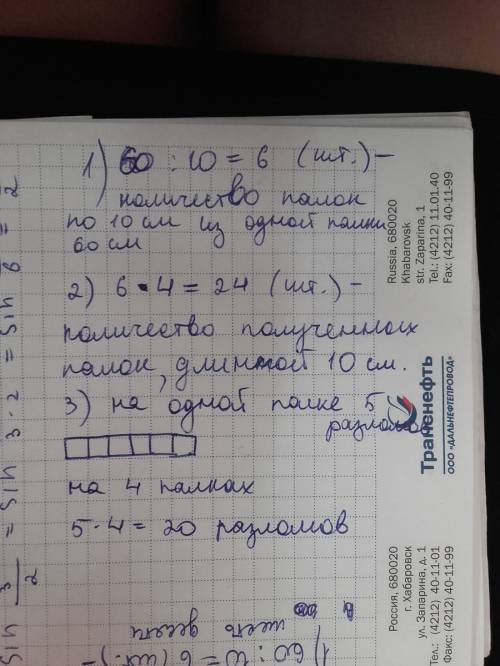 1) 60 : 10 = 6 (шт.) –
количество палок
по 10 см из одной палки
60 см
2) 6 · 4 = 24 (шт.) –
количество полученных
палок, длинной 10 см.
3) на одной палке 5
разломов
на 4 палках
5 · 4 = 20 разломов
1) 60 : 10 = 6 (шт.) –
= sin 3 · 2 = sin 6 = 2
Russia, 680020
Khabarovsk
str. Zaparina, 1
Tel.: (4212) 11.01.40
Fax: (4212) 40-11-99
Транснефть
ООО «ДАЛЬНЕФТЕПРОВОД»
Россия, 680020
г. Хабаровск
ул. Запарина, д. 1
Тел.: (4212) 40-11-01
Факс: (4212) 40-11-99